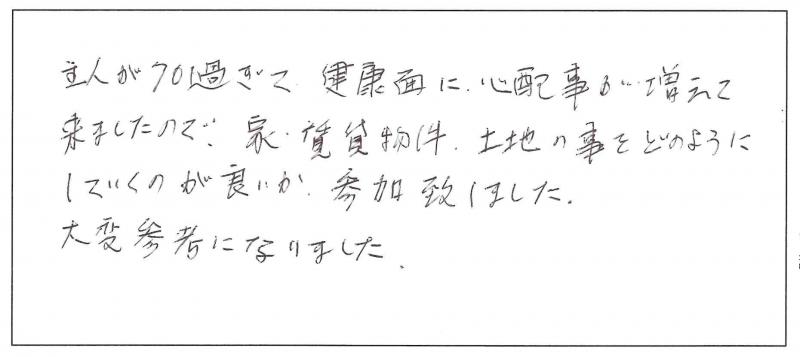 主人が70過ぎて、健康面に、心配事が、増えて
来ましたので、家、賃貸物件、土地の事をどのように
していくのが良いか、参加致しました。
大変参考になりました。